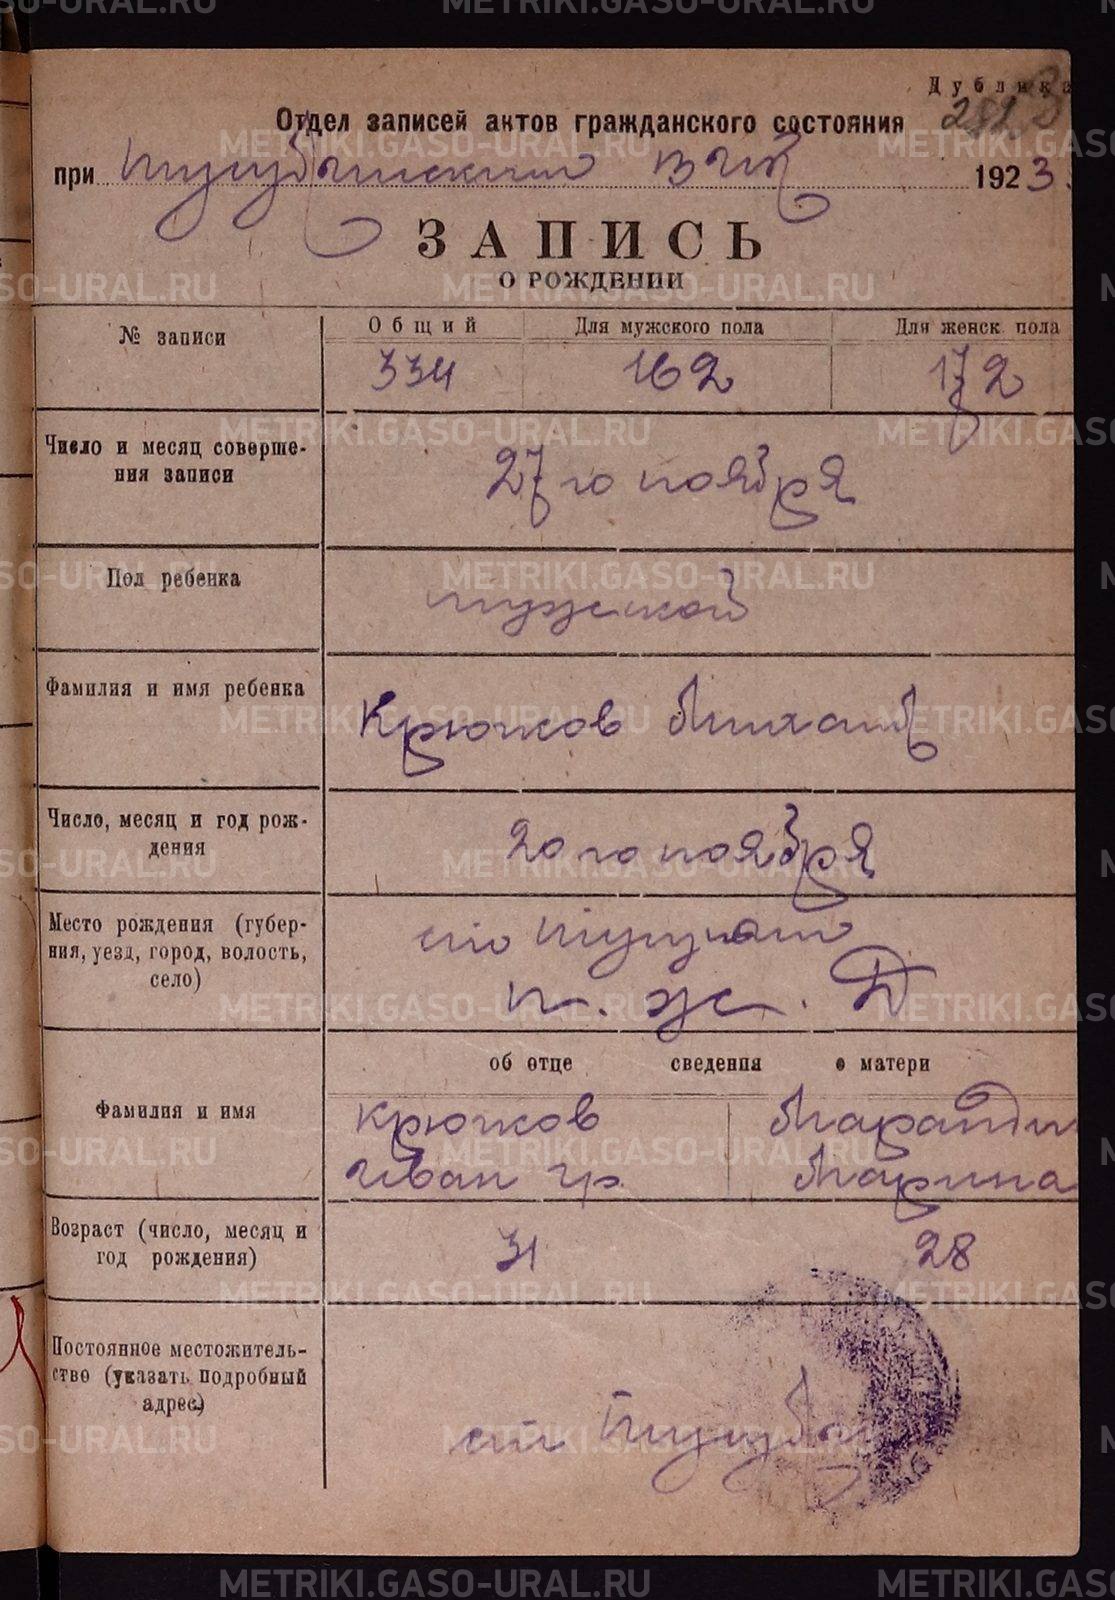 Дублика
Отдел записей актов гражданского состояния
при ВИК 1923.
ЗАПИСЬ
О РОЖДЕНИИ
№ записи
Общий
Для мужского пола
Для женск. пола
334
162
172
Число и месяц соверше-
ния записи
27 го ноября
Пол ребенка
мужской
Фамилия и имя ребенка
Крючков Михаил
Число, месяц и год рож-
дения
20 го ноября
Место рождения (губер-
ния, уезд, город, волость,
село)
ст
п. ж. Д
об отце сведения о матери
Фамилия и имя
Крючков
Иван гр.
Марина
Возраст (число, месяц и
год рождения)
31
28
Постоянное местожитель-
ство (указать подробный
адрес)
ст
METRIKI.GASO-URAL.RU